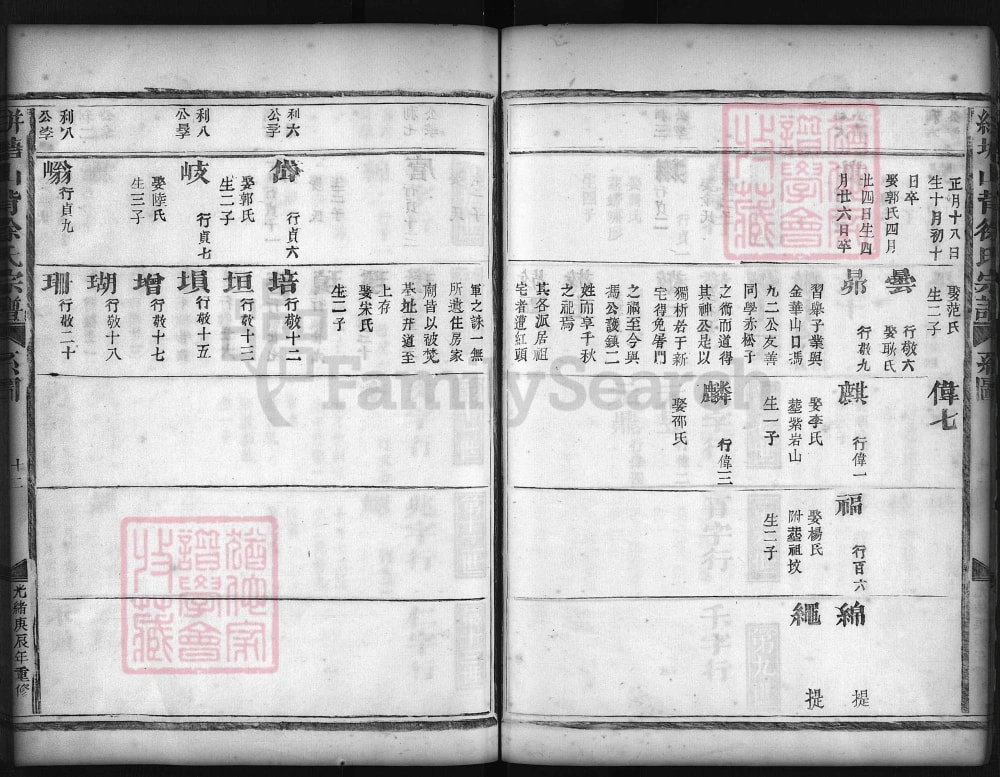 正月十八日
生十月初十
日卒
娶郭氏四月
廿四日生四
月廿六日卒
娶范氏
生二子
曇
行敬六
娶耿氏
昴
行敬九
習舉子業與
金華山口馮
九二公友善
同學赤松子
之術而道得
其神公是以
獨祈者于新
宅得免屠門
之禍至今與
馮公護鎮二
姓而享千秋
之祀焉
其各派居祖
宅者遭紅頭
偉七
麒
行偉一
娶李氏
塟紫岩山
生一子
麟
行偉三
娶邵氏
福
行百六
娶楊氏
附塟祖坟
生二子
綿
提
繩
提
利六
公子
利八
公學
利八
公孛
岱
行貞六
娶郭氏
生二子
岐
行貞七
娶陸氏
生三子
嵡
行貞九
軍之誅一無
所遺住房家
廟皆以被焚
基址井道至
上存
娶宋氏
生二子
培
行敬十二
垣
行敬十三
塤
行敬十五
增
行敬十七
瑚
行敬十八
珊
行敬二十
十二
光緒庚辰年重修
譜學會
收藏
譜學會
收藏
FamilySearch